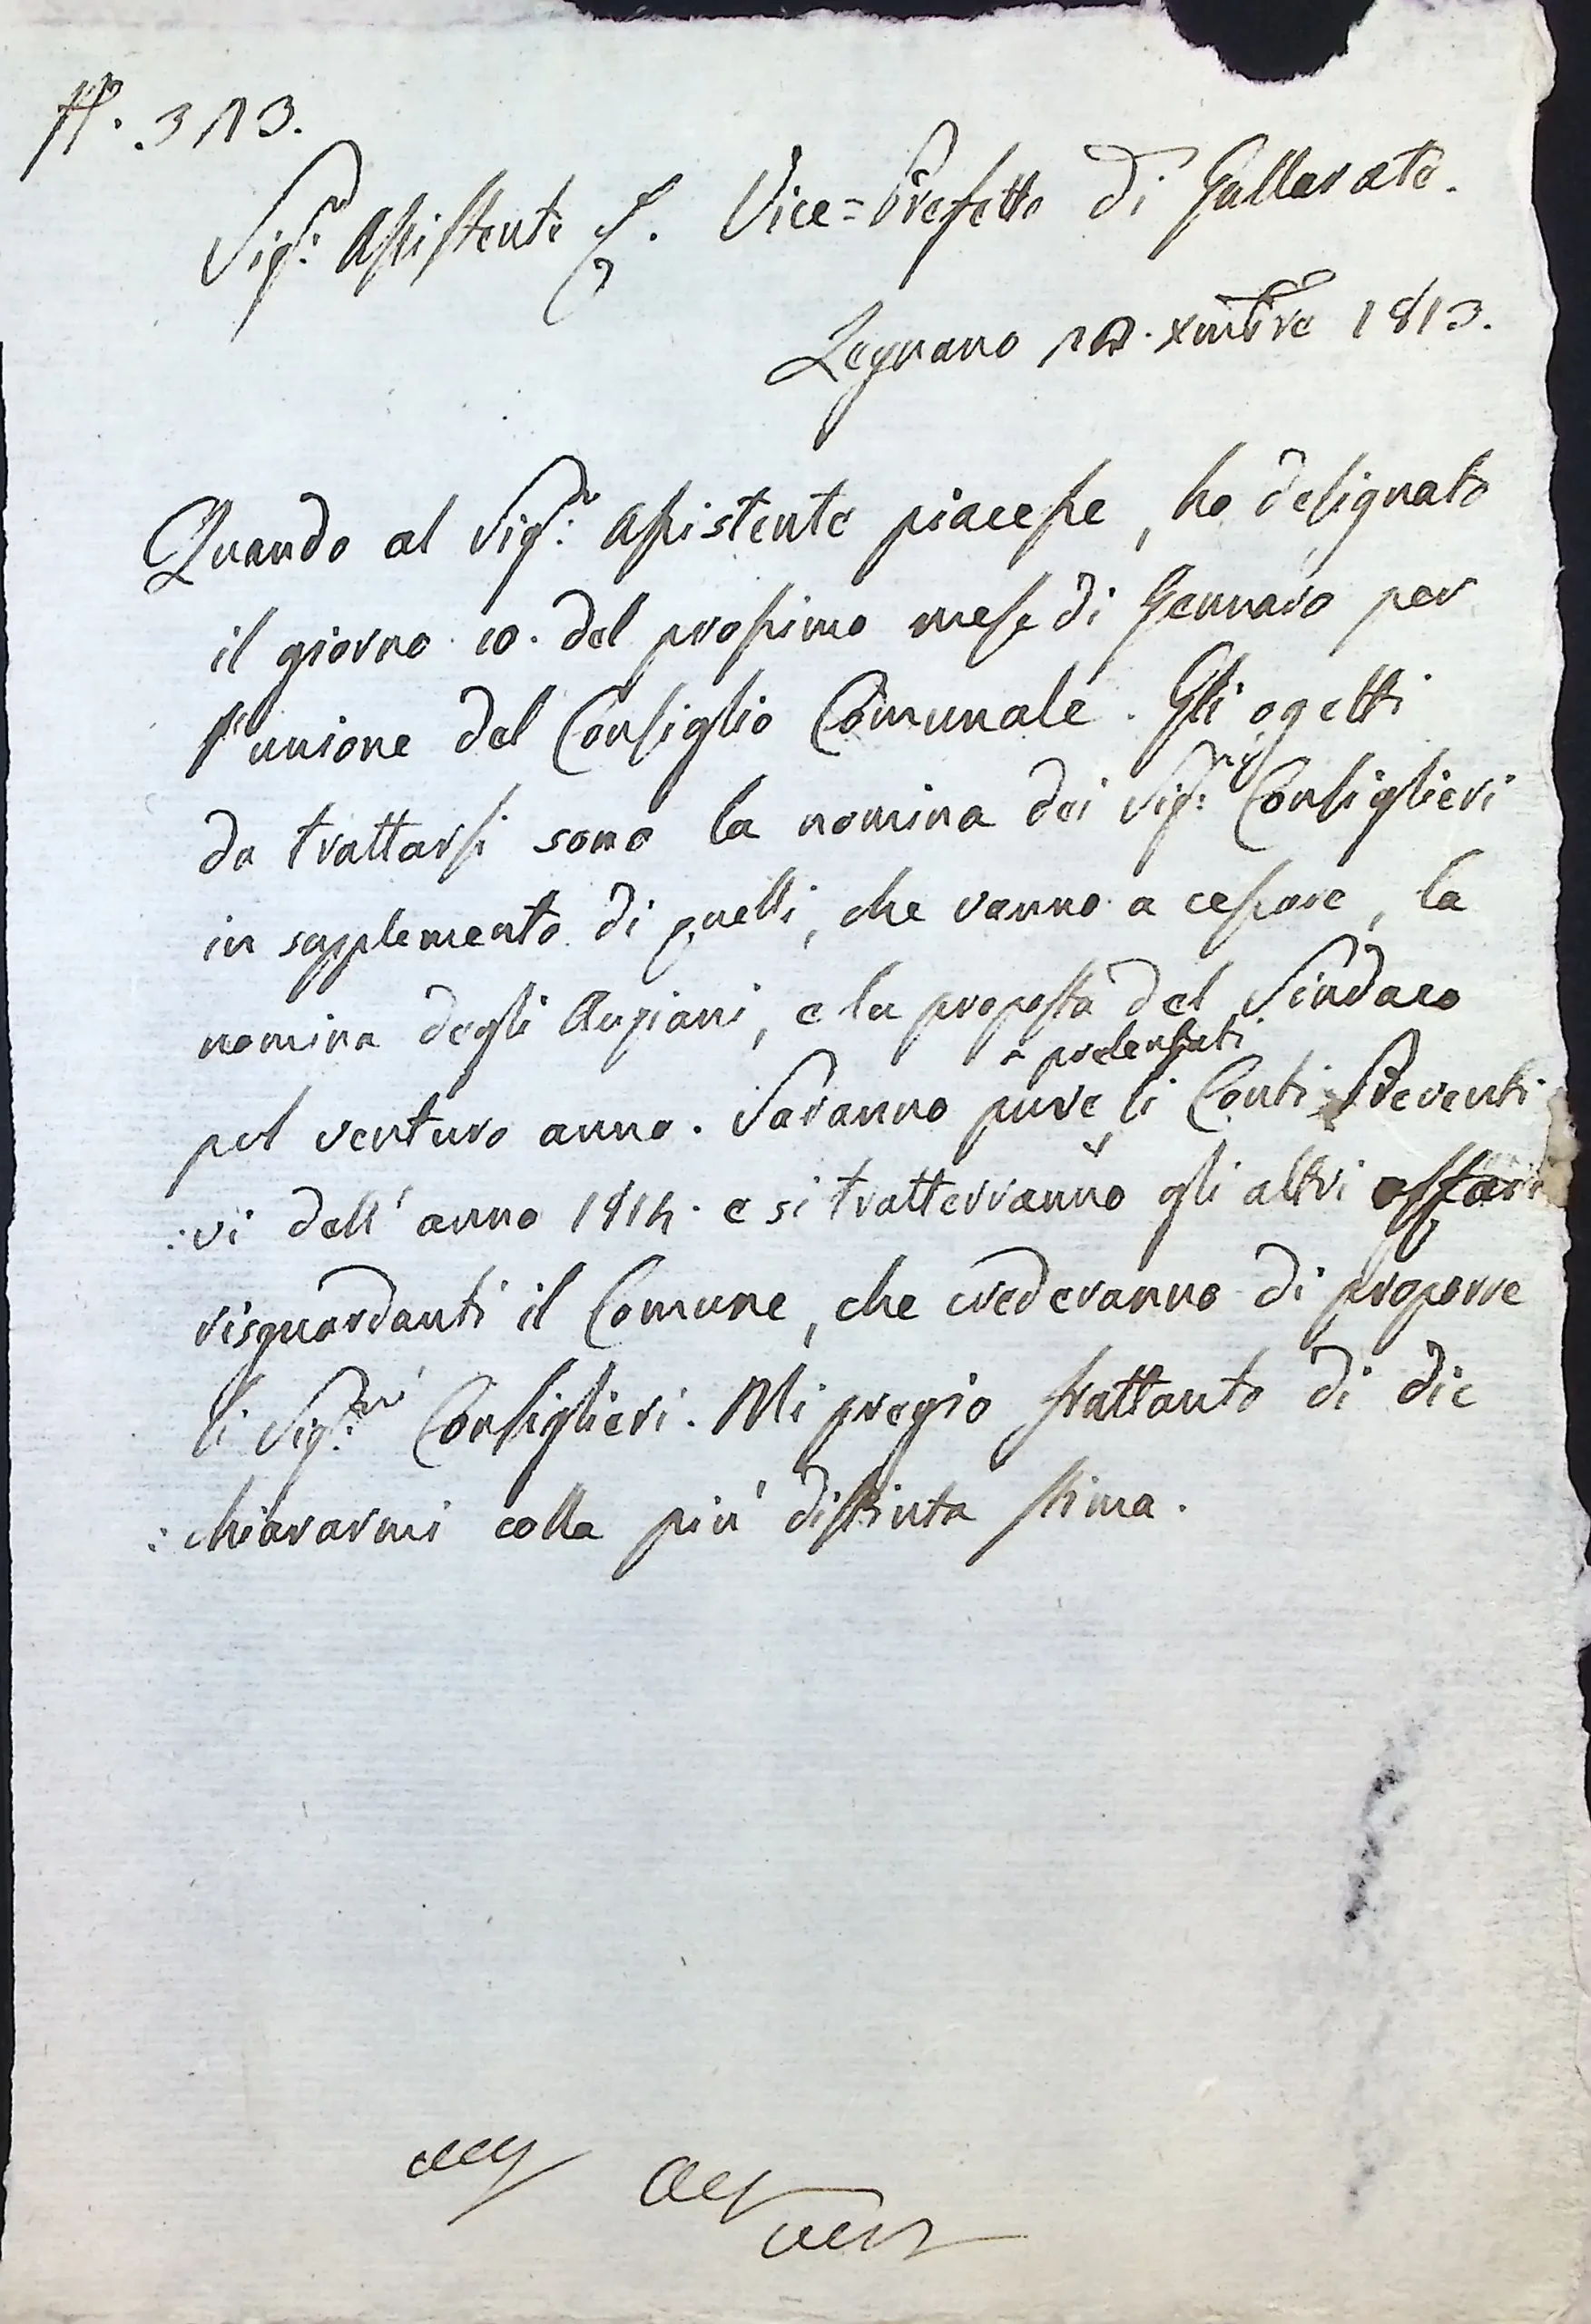 N. 313.
Sigr. Assistente f. Vice=Prefetto di Gallarate.
Legnano 12. Xmbre 1813.
Quando al Sigr. Assistente piacesse, ho designato
il giorno 10. del prossimo mese di Gennaro per
l'unione del Consiglio Comunale. Gli ogetti
da trattarsi sono la nomina dei Sigri: Consiglieri
in supplemento di quelli, che vanno a cessare, la
nomina degli Anziani, e la proposta del Sindaco
presentati
pel venturo anno. Saranno pure li Conti Preventi
:vi dell'anno 1814. e si tratterranno gli altri affari
risguardanti il Comune, che crederanno di proporre
li Sigri: Consiglieri. Mi pregio frattanto di dic
:chiararmi colla più distinta stima.